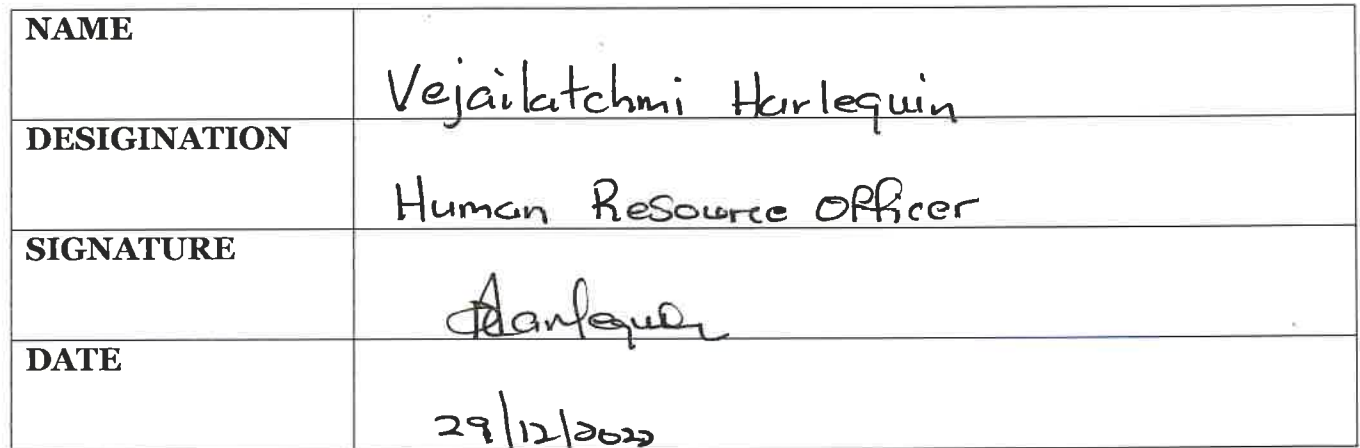 NAME
Vejailatchmi Harlequin
DESIGINATION
Human Resource Officer
SIGNATURE
Harlequin
DATE
29/12/2022